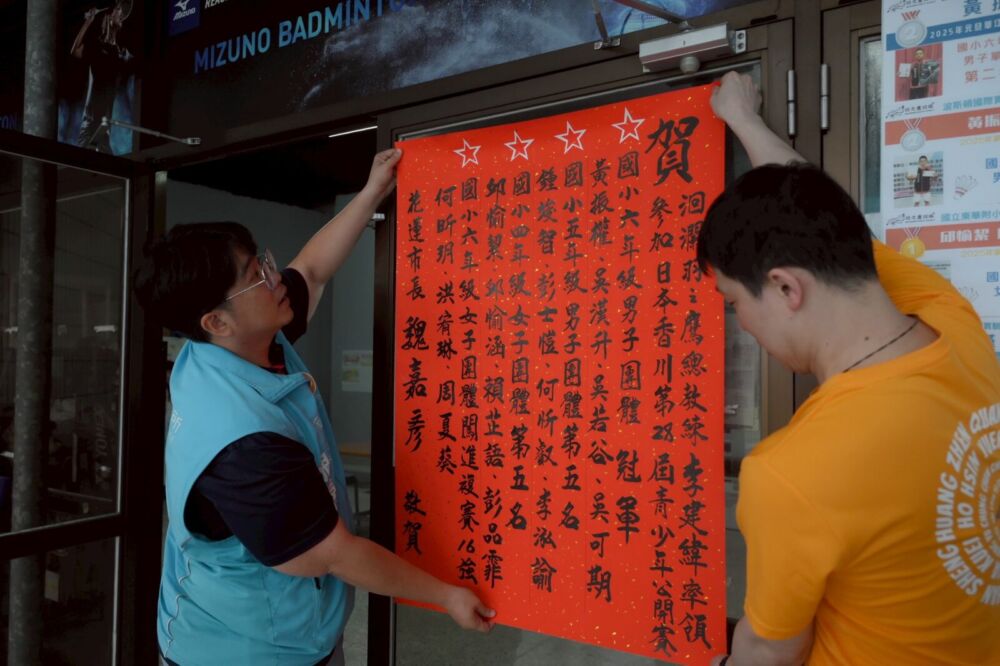 MIZUNO
MIZUNO BADMINTON
賀
洄瀾羽之鷹總教練李建緯率領
參加日本香川第28屆青少年公開賽
國小六年級男子團體 冠軍
黃振權、吳漢升、吳若谷、吳可期
國小五年級男子團體第五名
鍾埈智、彭士愷、何忻叡、李泓諭
國小四年級女子團體第五名
邱愉絜、邱愉涵、賴芷語、彭品霏
國小六年級女子團體闖進複賽16強
何昕玥、洪宥琳、周夏葵
花蓮市長 魏嘉彥 敬賀
黃振
2025年元旦華
國小六
男子單
第二
黃振
邱愉絜
SHENG HUANG ZHEN QUAN
HO HSIN